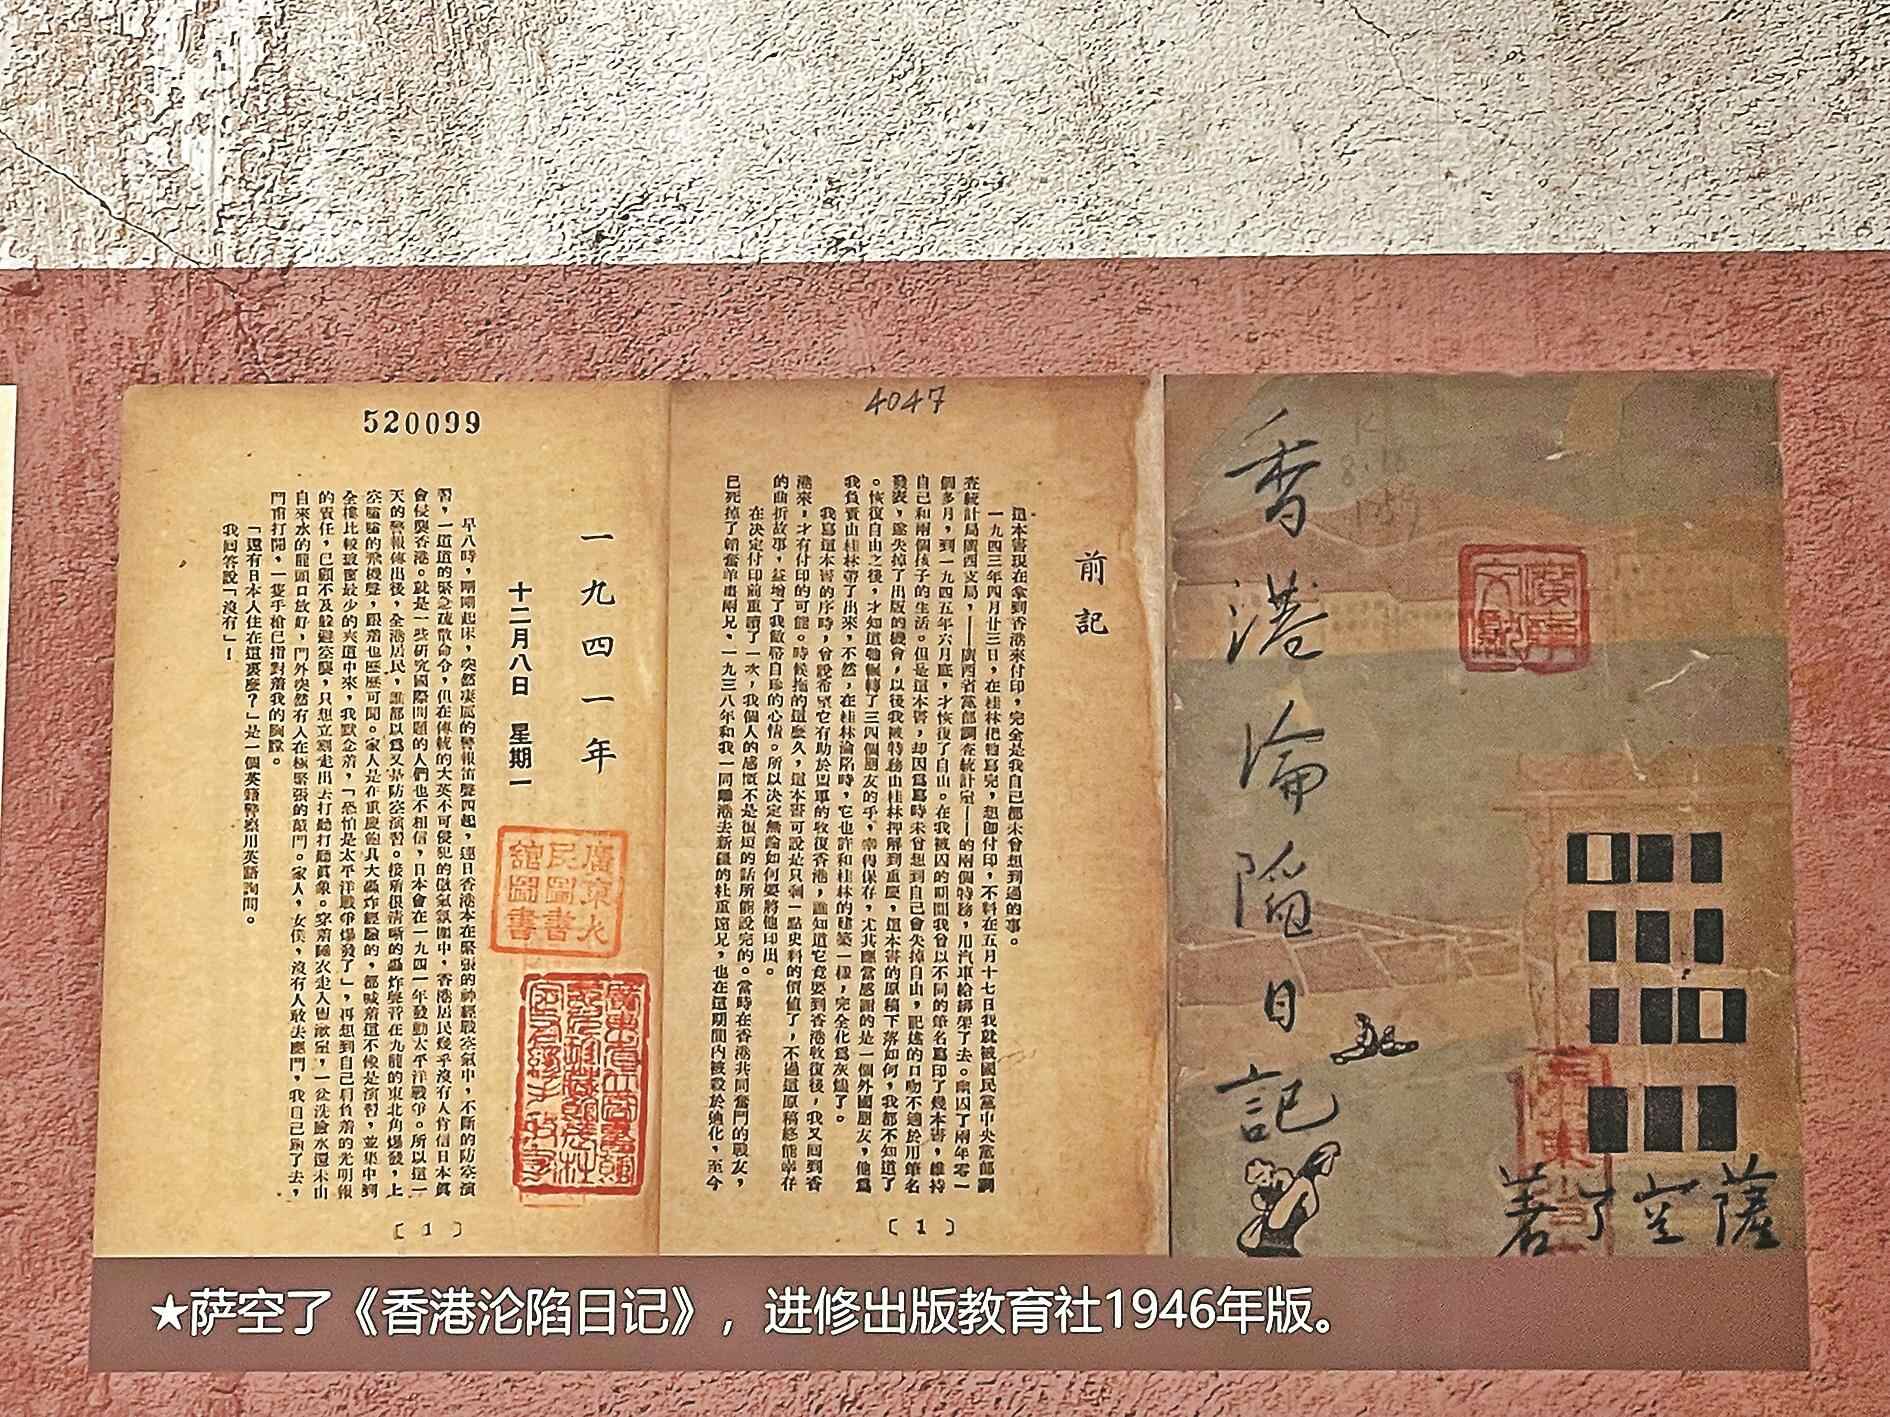 香港淪陷日記
薩空了著
4047
前記
這本書現在拿到香港來付印，完全是我自己都未曾想到過的事。
一九四三年四月廿三日，在桂林把牠寫完，想卽付印，不料在五月十七日我就被國民黨中央黨部調
查統計局廣西支局，——廣西省黨部調查統計室——的兩個特務，用汽車給綁架了去。幽囚了兩年零一
個多月，到一九四五年六月底，才恢復了自由。在我被囚的期間我曾以不同的筆名寫印了幾本書，維持
自己和兩個孩子的生活。但是這本書，却因爲寫時未曾想到自己會失掉自由，記述的口吻不適於用筆名
發表，遂失掉了出版的機會，以後我被特務由桂林押解到重慶，這本書的原稿下落如何，我都不知道了
。恢復自由之後，才知道牠輾轉了三四個朋友的手，幸得保存，尤其應當感謝的是一個外國朋友，他爲
我負責由桂林帶了出來，不然，在桂林淪陷時，它也許和桂林的建築一樣，完全化爲灰燼了。
我寫這本書的序時，曾說希望它有助於盟軍的收復香港，誰知道它竟要到香港收復後，我又回到香
港來，才有付印的可能。時候拖的這麼久，這本書可說是只剩一點史料的價值了，不過這原稿終能幸存
的曲折故事，益增了我敝帚自珍的心情。所以決定無論如何要將他印出。
在決定付印前重讀了一次，我個人的感慨不是很短的話所能說完的。當時在香港共同奮鬥的戰友，
已死掉了韜奮羊棗兩兄、一九三八年和我一同離港去新疆的杜重遠兄，也在這期間內被殺於迪化，至今
〔1〕
520099
一九四一年
十二月八日 星期一
廣東人民圖書館圖書
早八時，剛剛起床，突然凄厲的警報笛聲四起，連日香港本在緊張的神經戰空氣中，不斷的防空演
習，一道道的緊急疏散命令，但在傳統的大英不可侵犯的傲氣氛圍中，香港居民幾乎沒有人肯信日本眞
會侵襲香港。就是一些硏究國際問題的人們也不相信，日本會在一九四一年發動太平洋戰爭。所以這一
天的警報傳出後，全港居民，誰都以爲又是防空演習。接着很淸晰的轟炸聲音在九龍的東北角爆發，上
空隆隆的飛機聲，跟着也歷歷可聞。家人是在重慶飽具大轟炸經驗的，都喊着這不像是演習，並集中到
全樓比較玻窗最少的夾道中來，我默念着，「恐怕是太平洋戰爭爆發了」，再想到自己肩負着的光明報
的責任，已顧不及躱避空襲，只想立刻走出去打聽打聽眞象。穿着睡衣走入盥漱室，一盆洗臉水還未由
自來水的龍頭口放好，門外突然有人在極緊張的敲門。家人，女僕，沒有人敢去應門，我自己跑了去，
門甫打開，一隻手槍已指對着我的胸膛。
「還有日本人住在這裏麼？」是一個英籍警察用英語詢問。
我回答說「沒有」！
〔1〕
★萨空了《香港沦陷日记》，进修出版教育社1946年版。